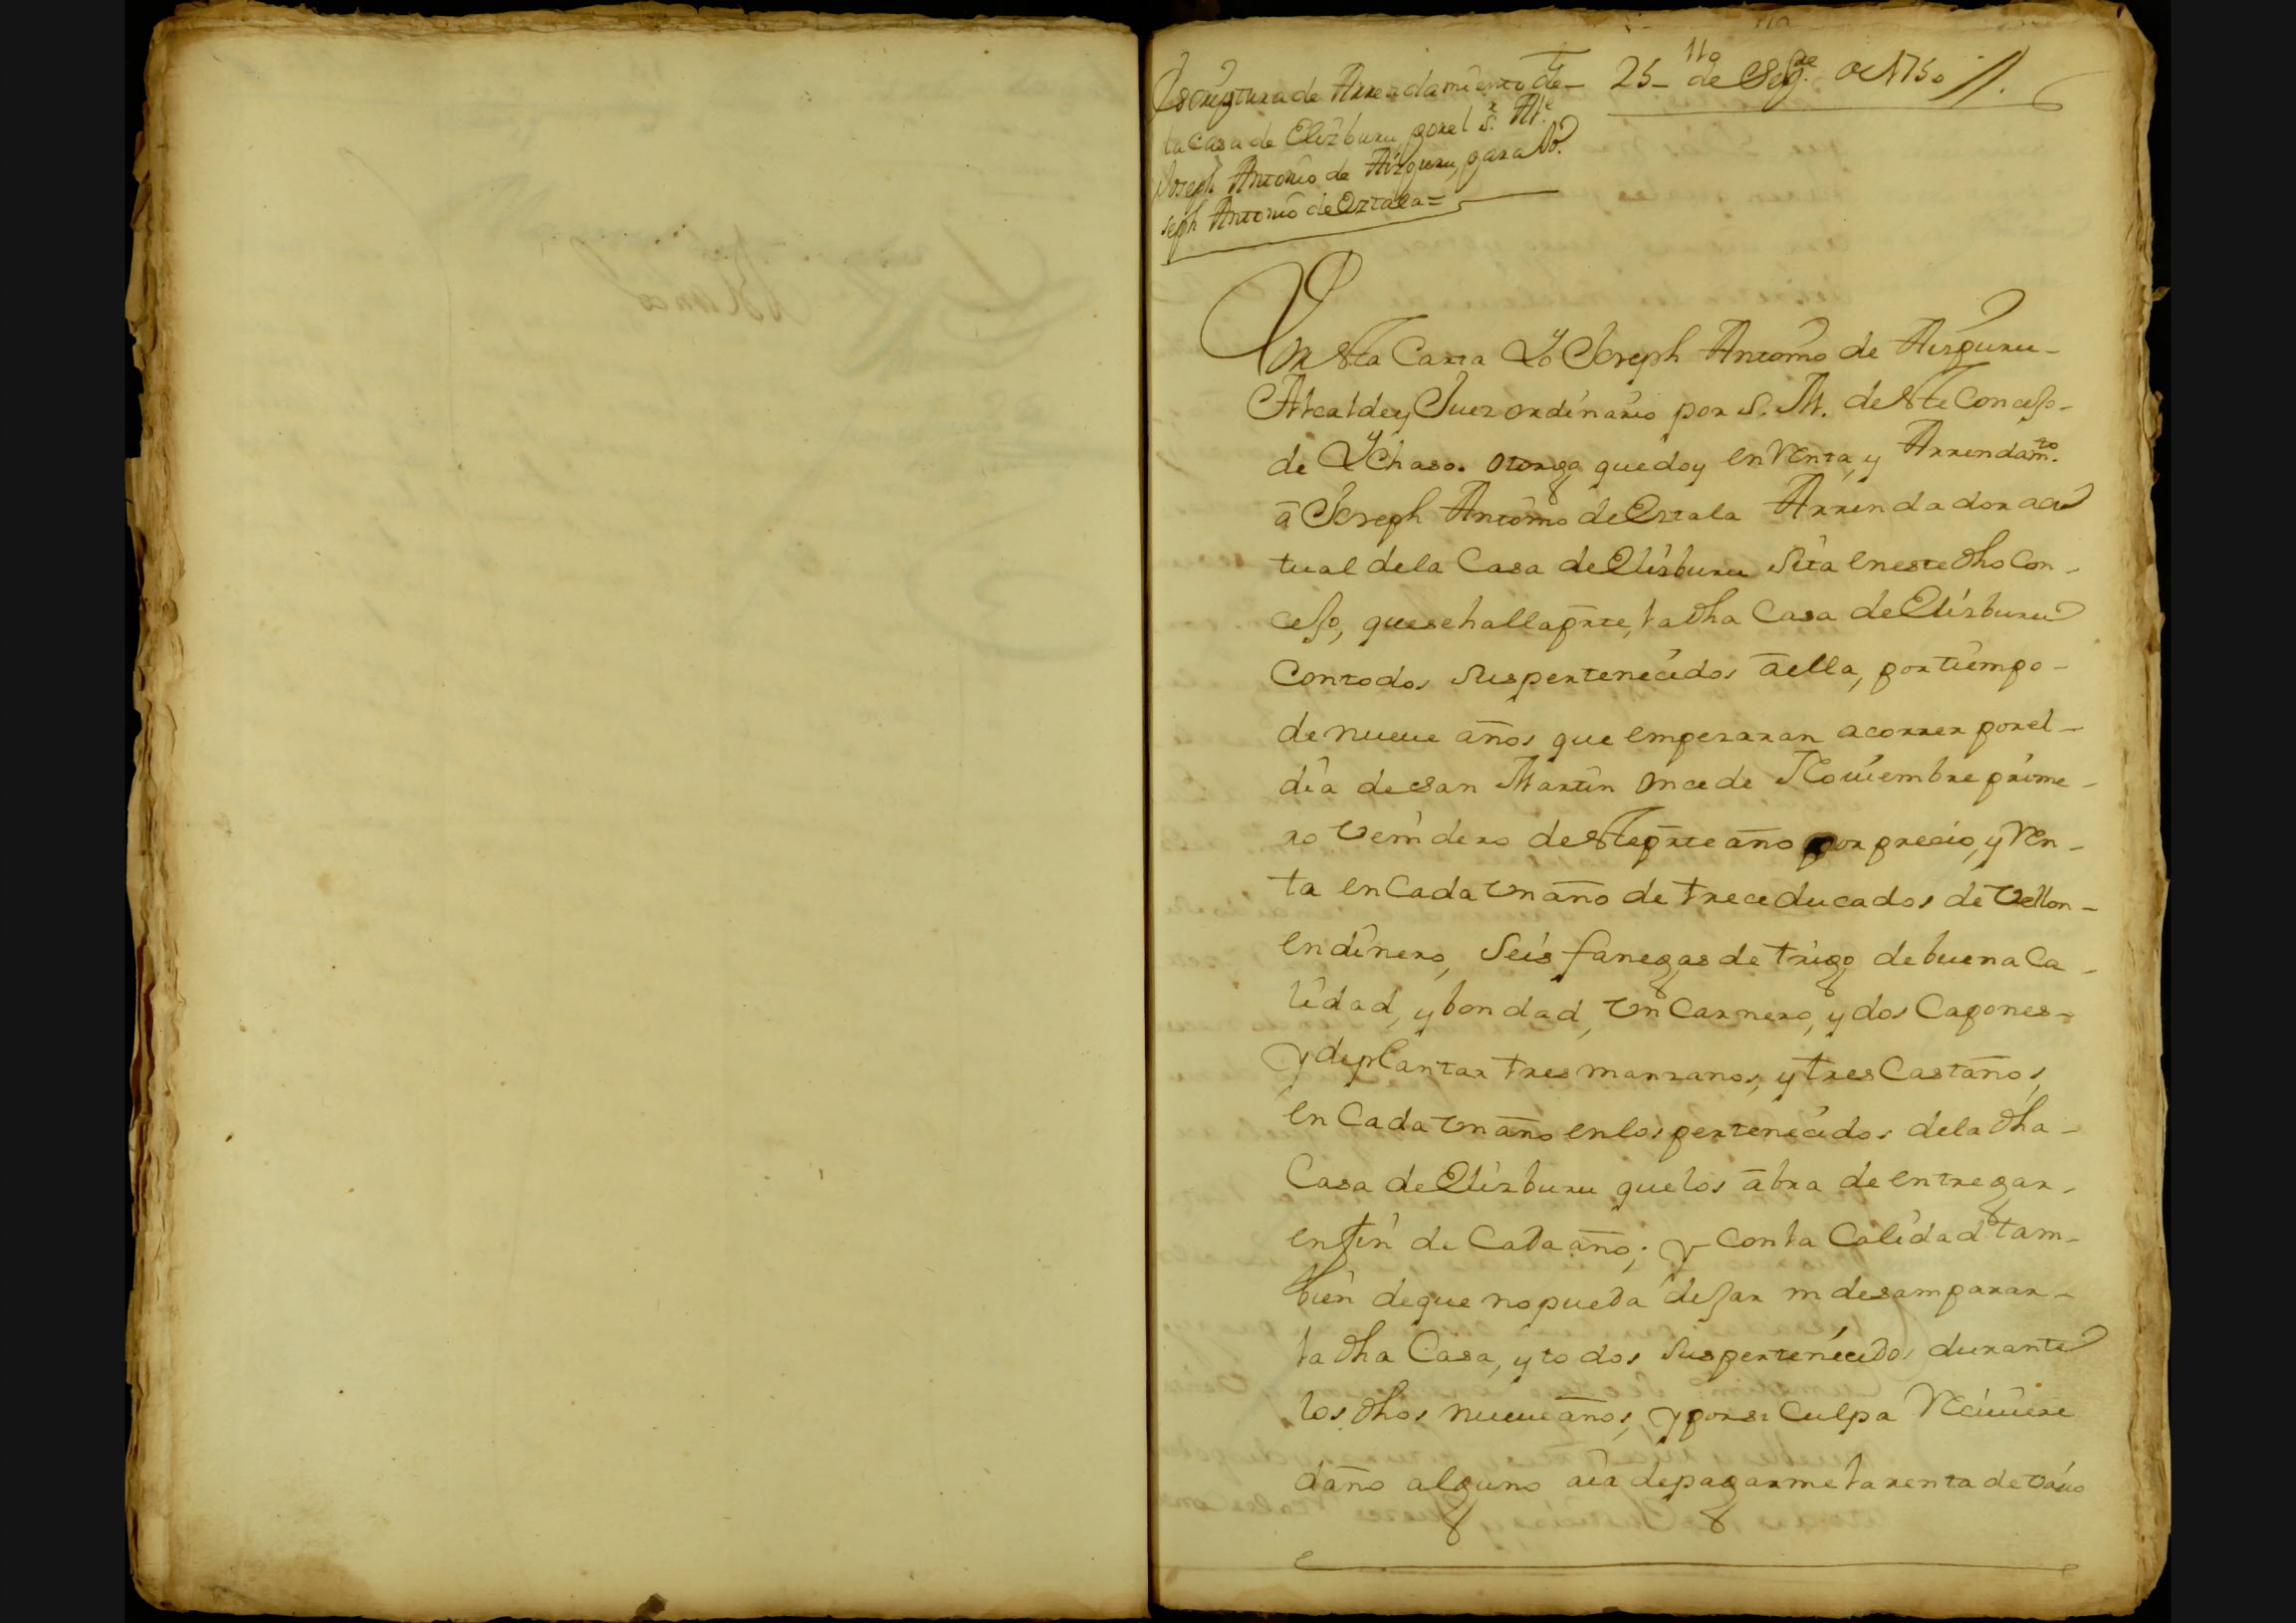 Escriptura de Arrendamiento de-
la casa de Elizburu por el s.r Al.e
Joseph Antonio de Aizpuru, para Jo
seph Antonio de Oztala=
25- de Sep.re de 1750 //.
En Sta Carta Yo Joseph Antonio de Aizpuru-
Alcalde y Juez ordinario por S. M. de Ste Concejo-
de Ychaso. otorgo que doy en Renta, y Arrendam.to
a Joseph Antonio de Oztala Arrendador ac
tual de la Casa de Elizburu Sita en este dho Con-
cejo, que se halla pnte, la dha Casa de Elizburu
Con todos sus pertenecidos a ella, por tiempo-
de nueue años que empezaran a correr por el-
dia de san Martin Once de Nouiembre prime-
ro Venidero de Ste pnte año por precio, y Ren-
ta en Cada Un año de trece ducados de Vellon-
en dinero, Seis fanegas de trigo de buena Ca-
lidad, y bondad, Un Carnero, y dos Capones-
y de plantar tres manzanos, y tres Castaños,
en Cada Un año en los pertenecidos de la dha-
Casa de Elizburu que los abra de entregar-
en fin de Cada año; y Con la Calidad tam-
bien de que no pueda dejar ni desamparar-
la dha Casa, y todos Sus pertenecidos durante
los dhos nueue años, y por si Culpa Reciuiere
daño alguno aia de pagarme la renta de Vacio